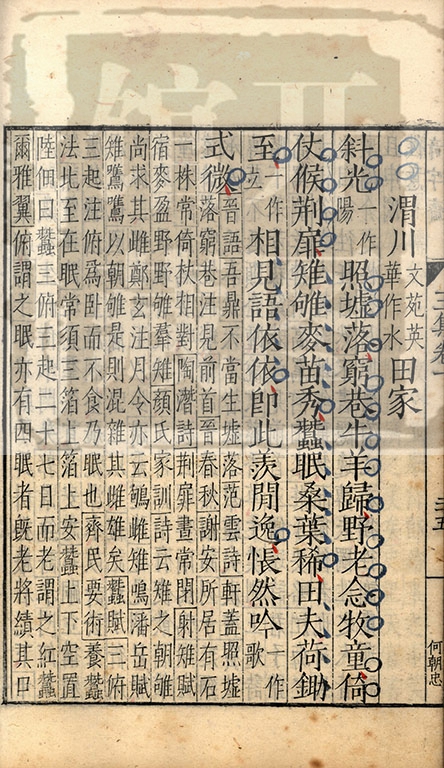 渭川文苑英華作水田家
斜光一作陽照墟落窮巷牛羊歸野老念牧童倚
仗候荆扉雉雊麥苗秀蠶眠桑葉稀田夫荷鋤
至一作立相見語依依卽此羨閒逸悵然吟一作歌
式微晉語吾鼎不當生墟落范雲詩軒蓋照墟
落窮巷注見前首晉春秋謝安所居有石
一株常倚杖相對陶潛詩荆扉晝常閉射雉賦
麥盈野野雊羣雉顏氏家訓詩云雉之朝雊
尚求其雌鄭玄注月令亦云雊雌雉鳴潘岳賦
雉鷕鷕以朝雊是則混雜其雌雄矣蠶賦三俯
三起注俯爲卧而不食乃眠也齊民要術養蠶
法比至在眠常須三箔上箔上安蠶上下空置
陸佃曰蠶三俯三起二十七日而老謂之紅蠶
爾雅翼俯謂之眠亦有四眠者旣老將績其口
何朝忠